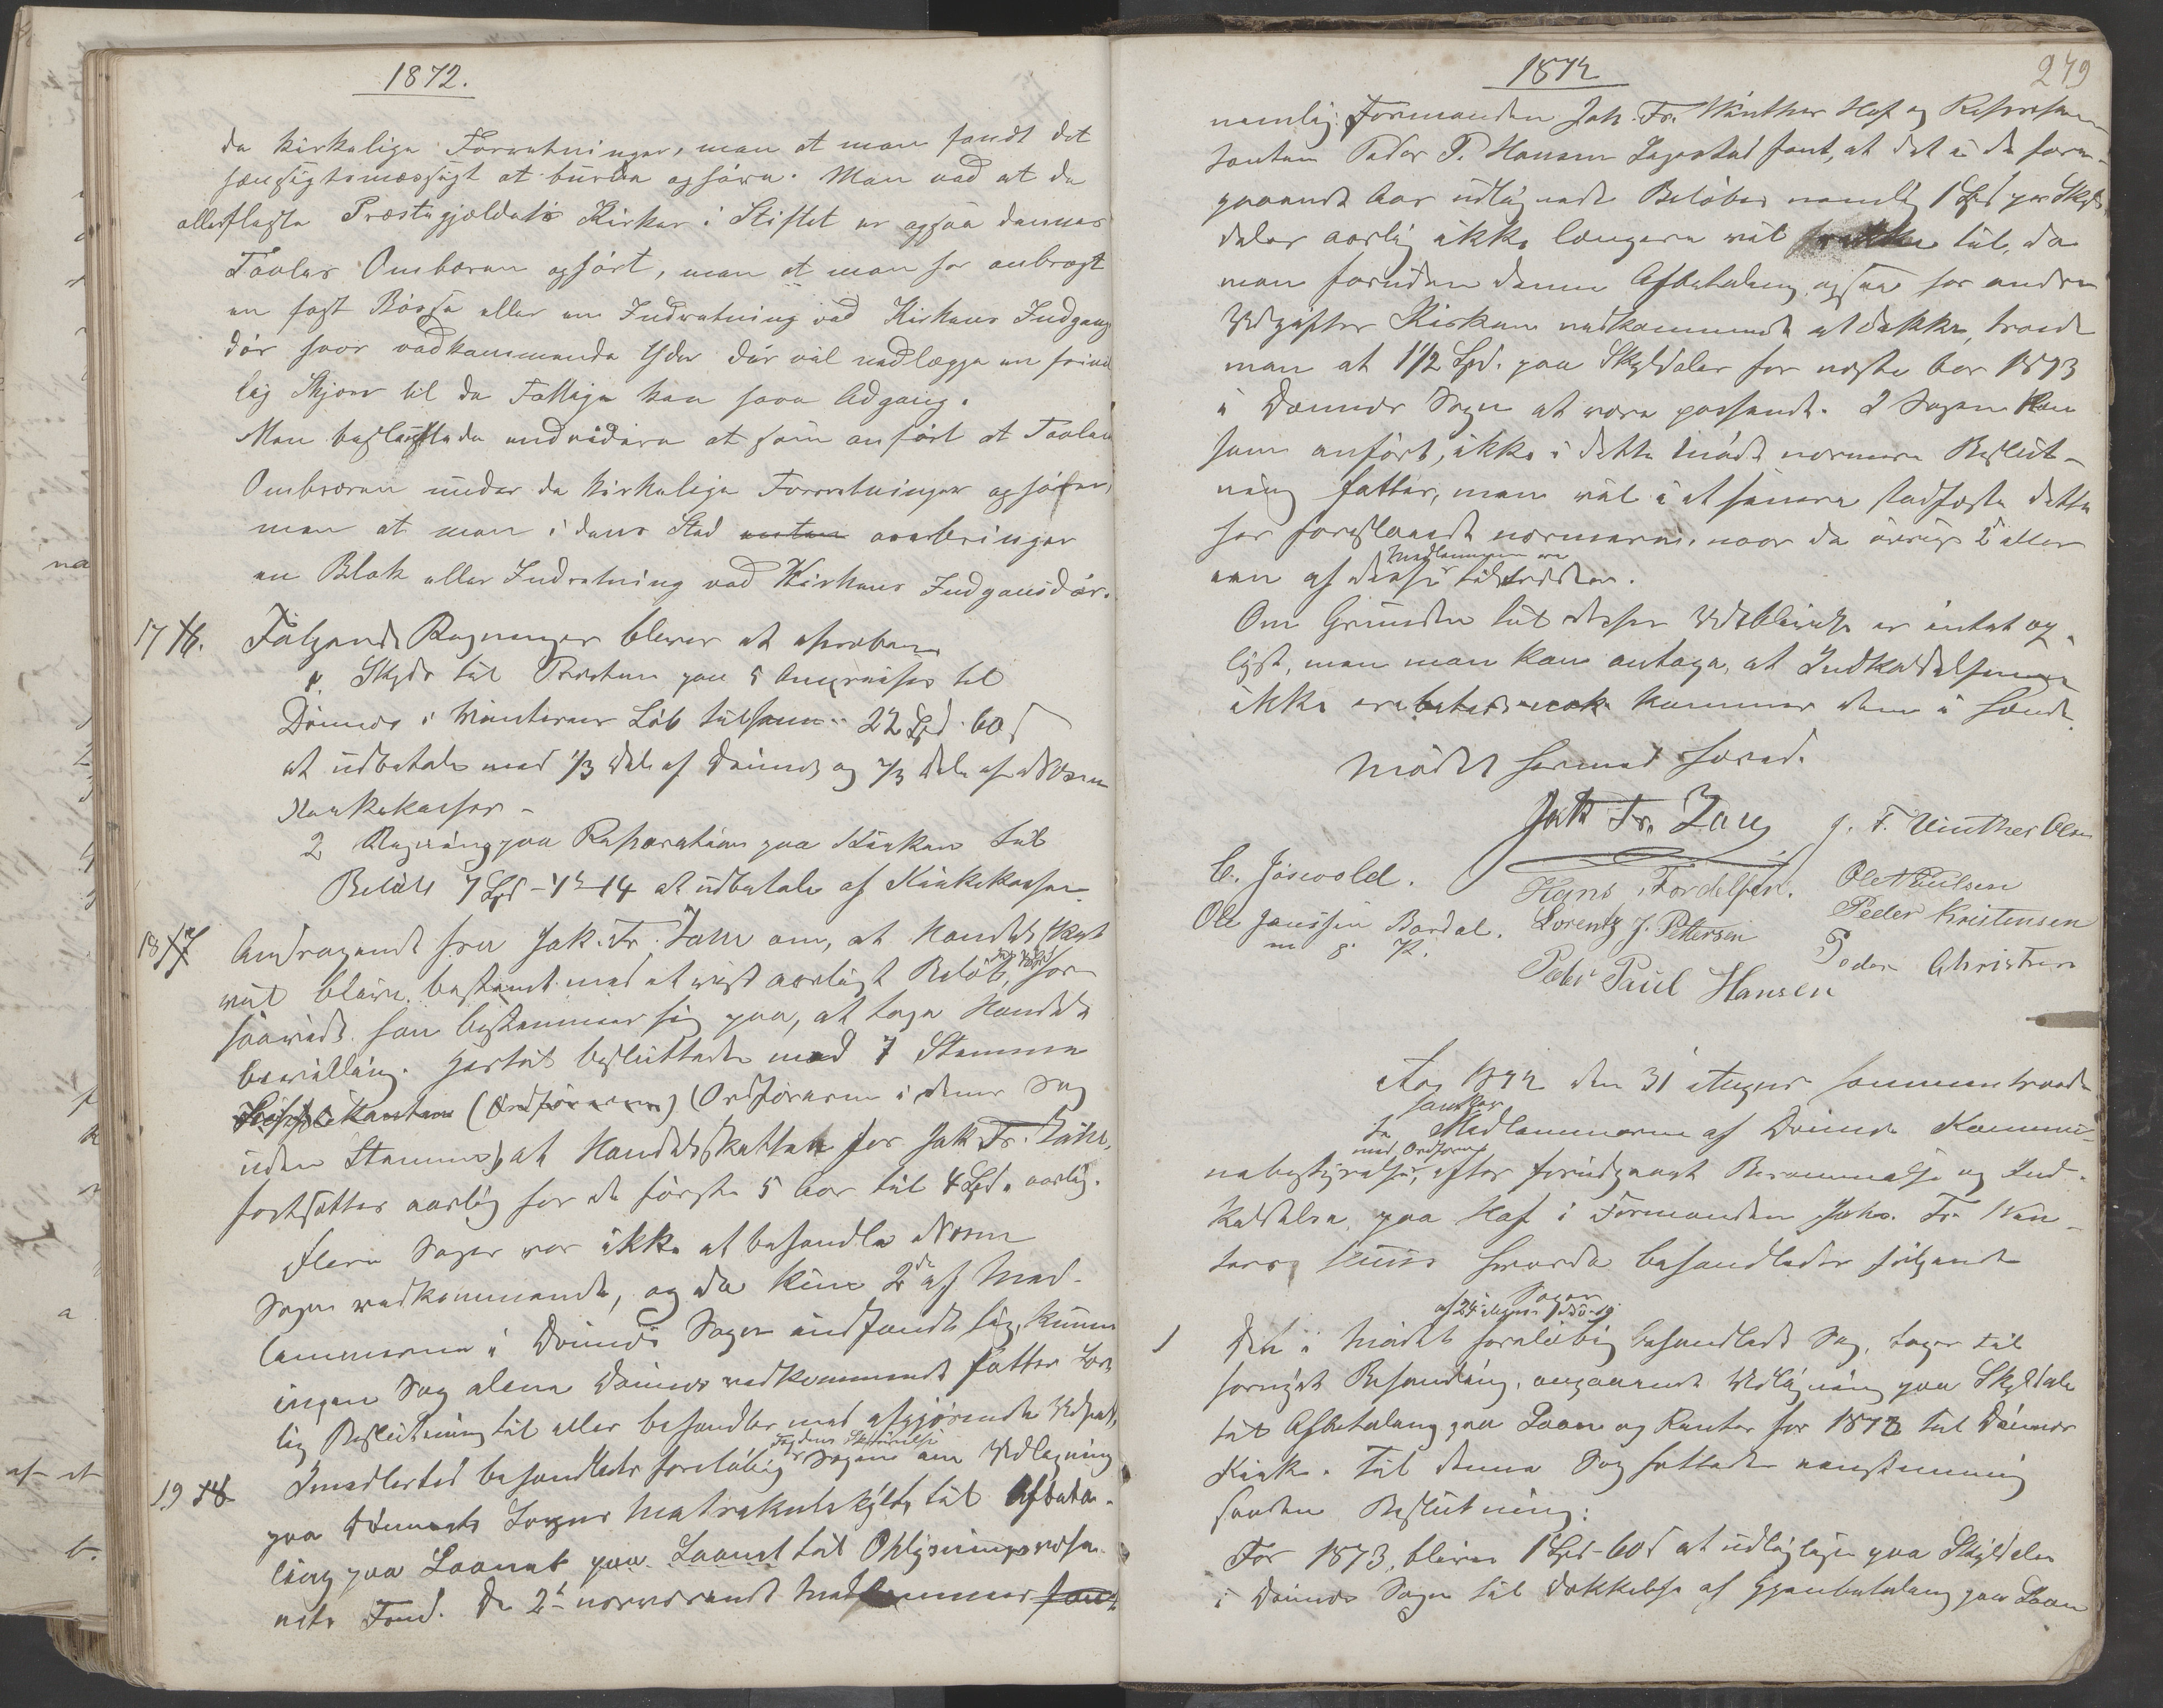 1872.
de kirkelige Forretninger, men at man fandt det
hensigtsmæssigt at burde ophøre. Men ved at de
allerfleste Præstegjældets Kirker i Stiftet er ogsaa dennes
Tavles Ombæren ophørt, men at man har anbragt
en fast Bøsse eller en Indretning ved Kirkens Indgang
dør hvor vedkommende Yder der vil nedlægge en frivil
lig Skjærv til de Fattige kan have Adgang.
Man besluttede endvidere at som anført at Tavlens
Ombæren under de kirkelige Forretninger ophører,
men at man i dens Sted anbringer
en Blok eller Indretning ved Kirkens Indgansdør.
17 16. Følgende Regninger blever at
1. Skyds til Præsten paa 5 Angreiser til
Dønnes i Vinterens Løb tilsam 22 Spd. 60 s
at udbetale med 1/3 Del af Dønnes og 2/3 Dele af Nesne
Kirkekasser -
2 Regning paa Reparation paa Kirken til
Beløb 7 Spd - 14 at udbetale af Kirkekassen
18 17 Andragende fra Jak. Fr. Zahl om, at Handelsskat
vil blive bestemt med et vist aarligt Beløb, for
saavidt han bestemmer sig paa, at tage Handels
bevilling. Hertil besluttede med 7 Stemme
(Ordføreren) (Ordføreren i denne Sag
uden Stemme) at Handelsskatten for Jak. Fr. Zahl,
fortsættes aarlig for de første 5 Aar til 4 Spd. aarlig.
Flere Sager var ikke at behandle Nesne
Sogn vedkommende, og da kun 2de af Med-
lemmerne i Dønnes Sogn indfandt sig, kunne
ingen Sag alene Dønnes vedkommende fattes
lig Beslutning til eller behandles med afgjørende Udfald,
19 18 Imidlertid behandlede foreløbig Sagen om Udligning
paa Dønnes Sogns Matrikulskyld, til Afbeta-
ling paa Laanet paa Laanet til Oplysningsvæse-
nets Fond. De 2de nærværende Medlemmer
1872
249
nemlig Formanden Joh. Fr. Winther Haf og Repræsen-
tanten Peder P. Hansen Lagestad fant, at det i de fore-
gaaende Aar udlignede Beløb nemlig 1 Spd pr Skyld
daler aarlig ikke længere vil til, da
man foruden denne Afbetaling, ogsaa har andre
Udgifter Kirken vedkommende at dække, troede
man at 1 1/2 Spd. paa Skylddaler for næste Aar 1873
i Dønnes Sogn at være passende. 2 Sagen kan
som anført, ikke i dette Møde nærmere Beslut-
ning fattes, men vil i et senere stadfæste dette
her foreslaaede nærmere, naar de øvrige 2de eller
een af disse Medlemmer ere tilstede.
Om Grunden til disses Udeblivelse er intet op
lyst, men man kan antage, at Indkaldelserne
ikke ere betids nok kommen dem i Hænde.
Mødet hermed hævet.
Jak Fr. Zahl
J. F. Vinther Olsen
C. Jøsevold.
Hans Fordelsen.
Ole Paulsen
Ole Janssen Bardal.
m. p. P.
Lorentz J. Pettersen
Peder Kristensen
Peder Paul Hansen
Peder Christian
Aar 1872 den 31 August sammentraadte
samtlige
Medlemmerne af Dønnes Kommu-
med Ordføreren
nebestyrelse, efter forudgaaet Berammelse og Ind-
kaldelse, paa Haf i Formanden Johs. Fr. Win-
thers Huus hvorda behandledes følgende
Sager
1 Den i Mødet af 24 August foreløbig behandlede Sag, tages til
fornyet Behandling, angaaende Udligning paa Skylddaler
til Afbetaling paa Laan og Renter for 1873 til Dønnes
Kirke. Til denne Sag fattedes eenstemmig
saadan Beslutning:
For 1873, bliver 1 Spd - 60 s at udligne paa Skyldaler
i Dønnes Sogn til Dækkelse af Gjenbetaling paa Laan